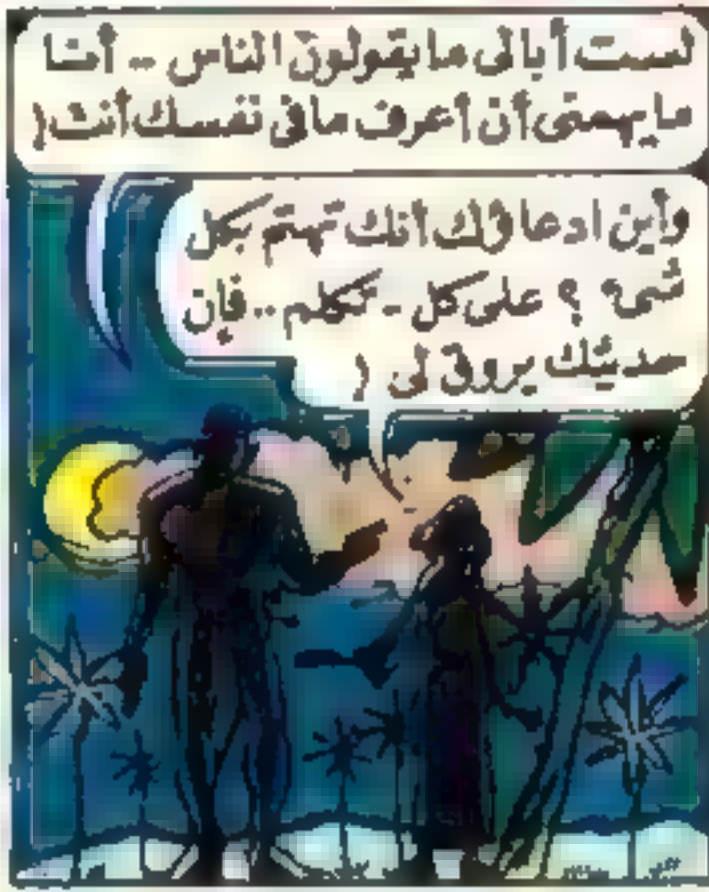 لست أبالى ما يقولون الناس .. أنا
ما يهمنى أن أعرف ما فى نفسك أنت !
وأين ادعاؤك أنك تهتم بكل
شىء ؟ على كل - تكلم .. فإن
حديثك يروق لى !